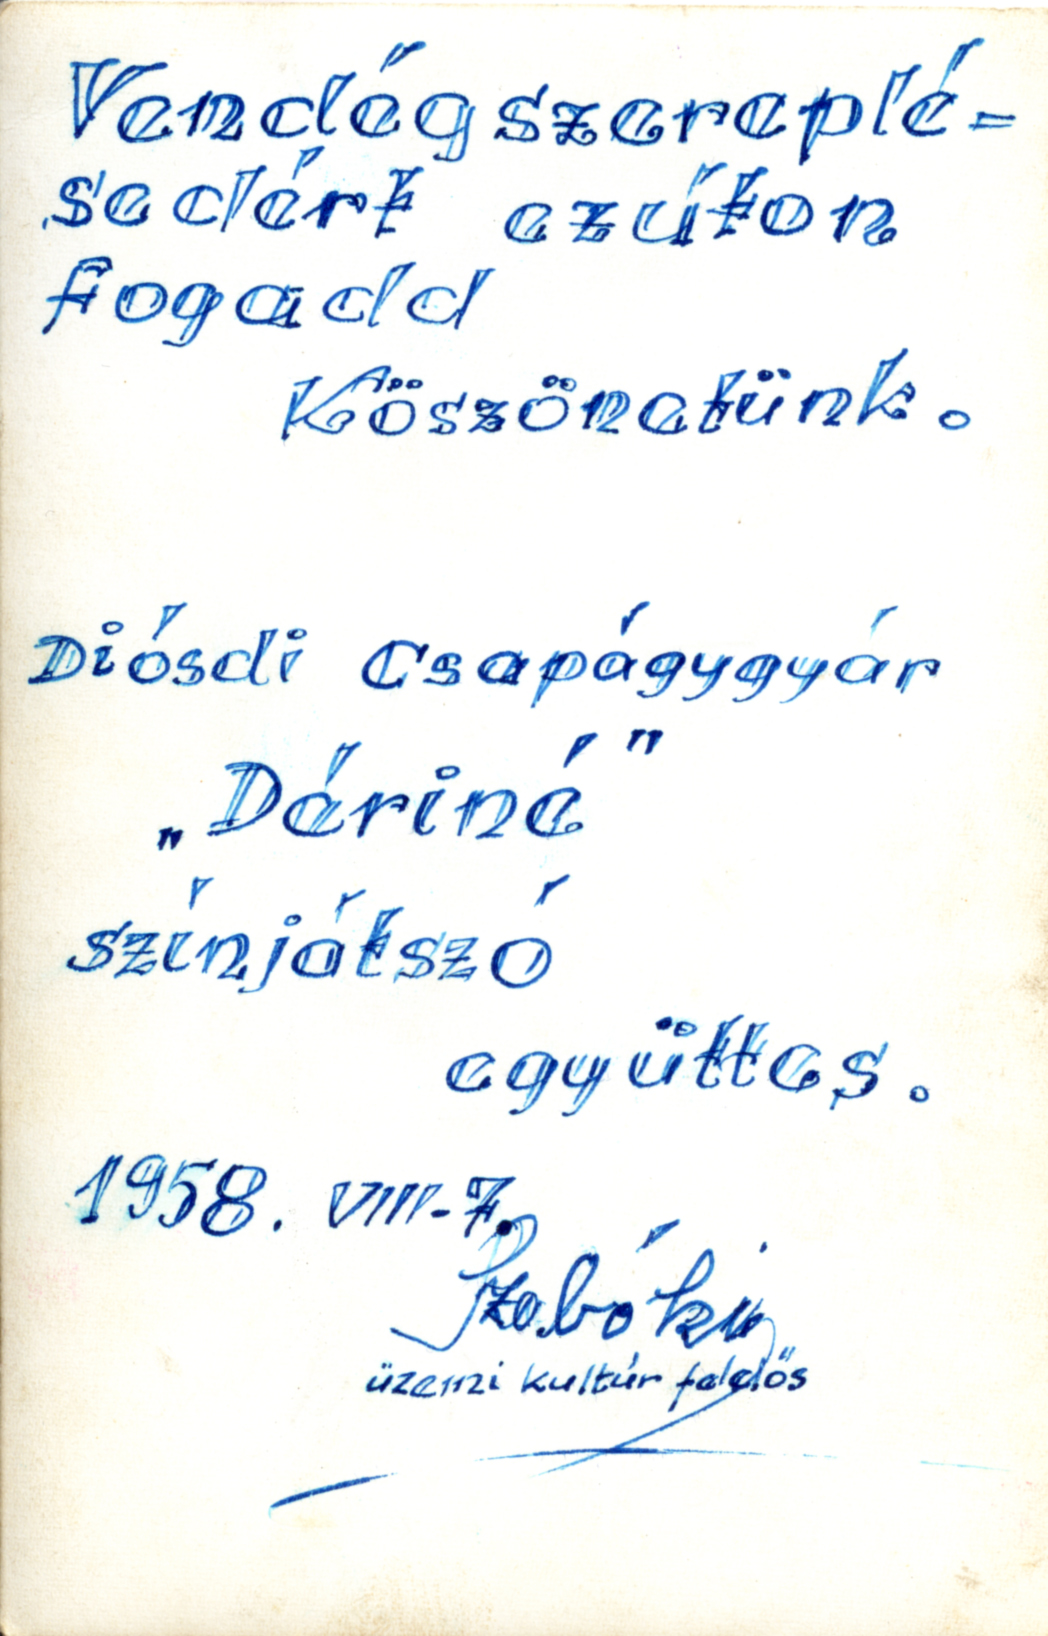 Vendégszereplé=
sedért ezúton
fogadd
Köszönetünk.
Diósdi Csapágygyár
„Dériné"
színjátszó
együttes.
1958. VIII-7.
üzemi kultúr felelős